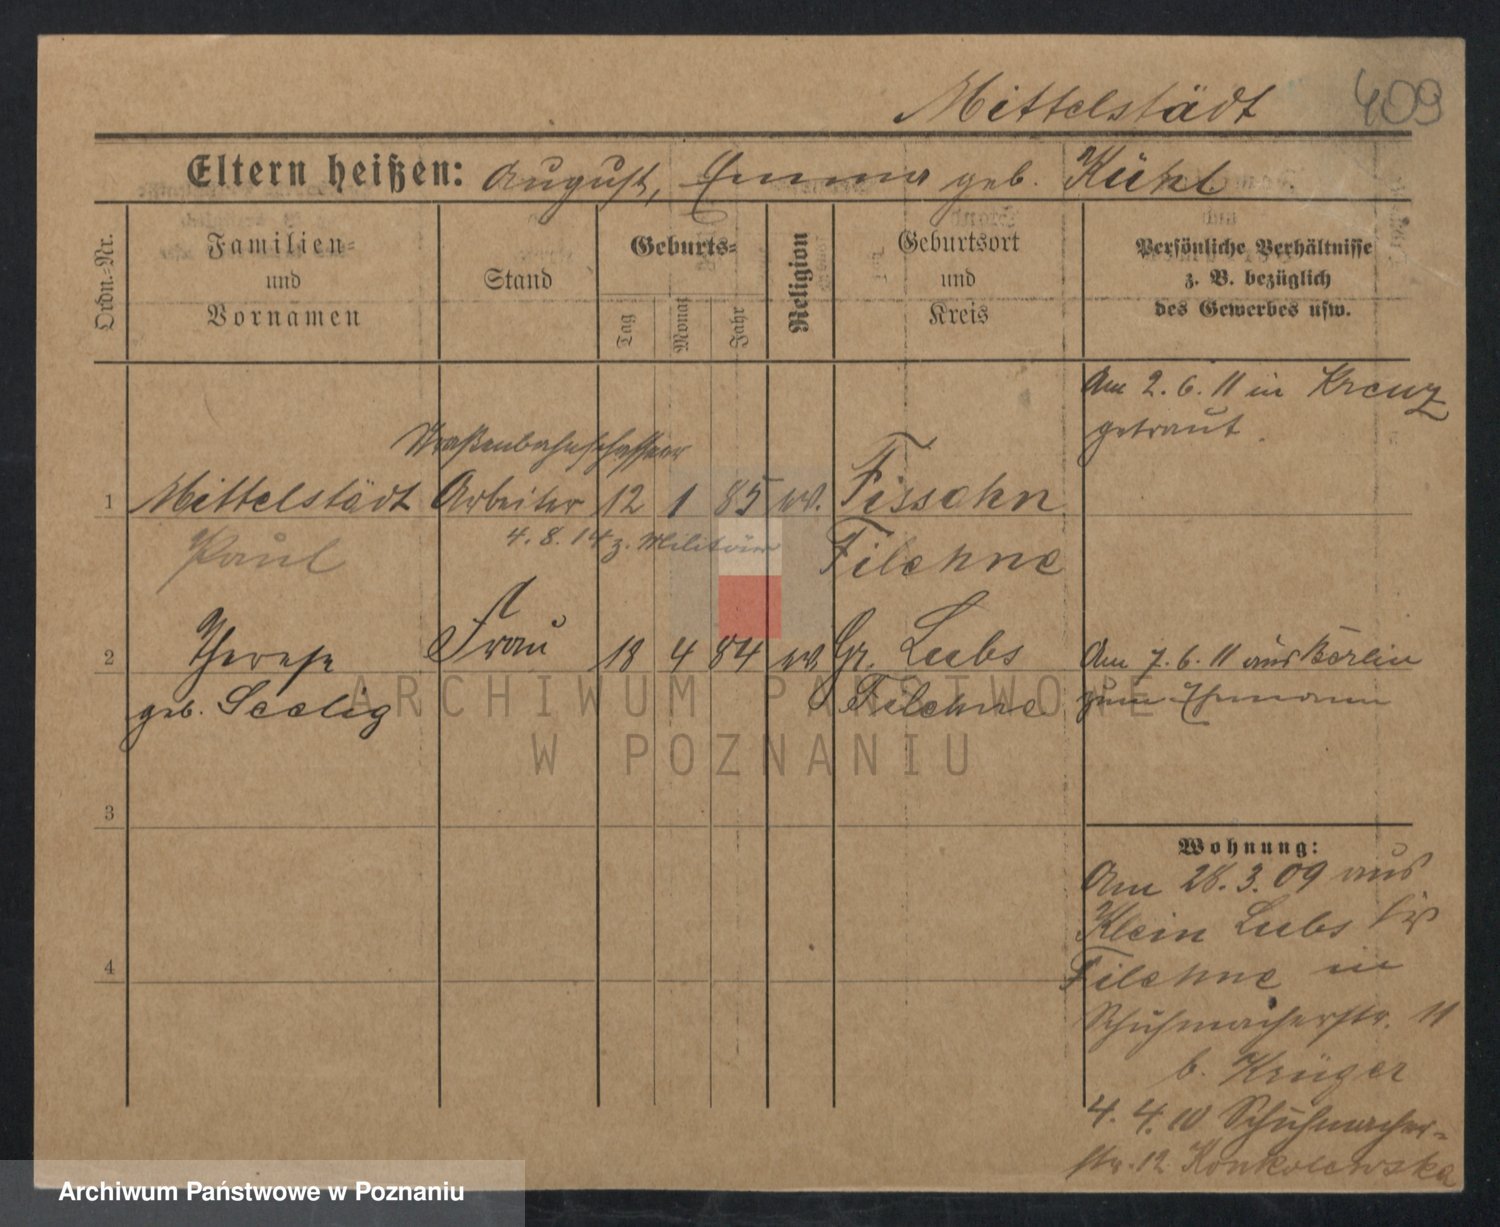 Mittelstädt 409
Eltern heißen: August, Emma geb. Kühl
Ordn.-Nr.
Familien-
und
Vornamen
Stand
Geburts-
Tag
Monat
Jahr
Religion
Geburtsort
und
Kreis
Persönliche Verhältnisse
z. B. bezüglich
des Gewerbes usw.
Am 2. 6. 11 in Kreuz
getraut.
Straßenbahnschaffner
1 Mittelstädt Arbeiter 12 1 85 ev. Fissahn
Paul 4. 8. 14 z. Militär Filehne
2 Therese Frau 18 4 84 ev Gr. Lubs Am 7. 6. 11 aus Berlin
geb. Seelig Filehne. zum Ehemann
3
Wohnung:
Am 28. 3. 09 aus
Klein Lubs
4
Filehne in
Schuhmacherstr. 11
b. Krüger
4. 4. 10 Schuhmacher-
str. 12 Konkolewska
ARCHIWUM PAŃSTWOWE
W POZNANIU
Archiwum Państwowe w Poznaniu